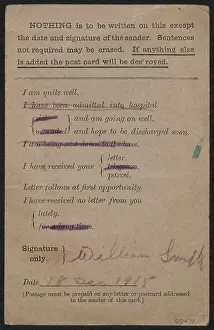 NOTHING is to be written on this except
the date and signature of the sender. Sentences
not required may be erased. If anything else
is added the post card will be destroyed.
I am quite well.
I have been admitted into hospital
and am going on well.
and hope to be discharged soon.
I am being sent down to the base.
letter.
I have received your telegram
parcel.
Letter follows at first opportunity.
I have received no letter from you
lately.
for a long time.
Signature
only. William
Date 18 Dec 1915
[Postage must be prepaid on any letter or postcard addressed
to the sender of this card.]